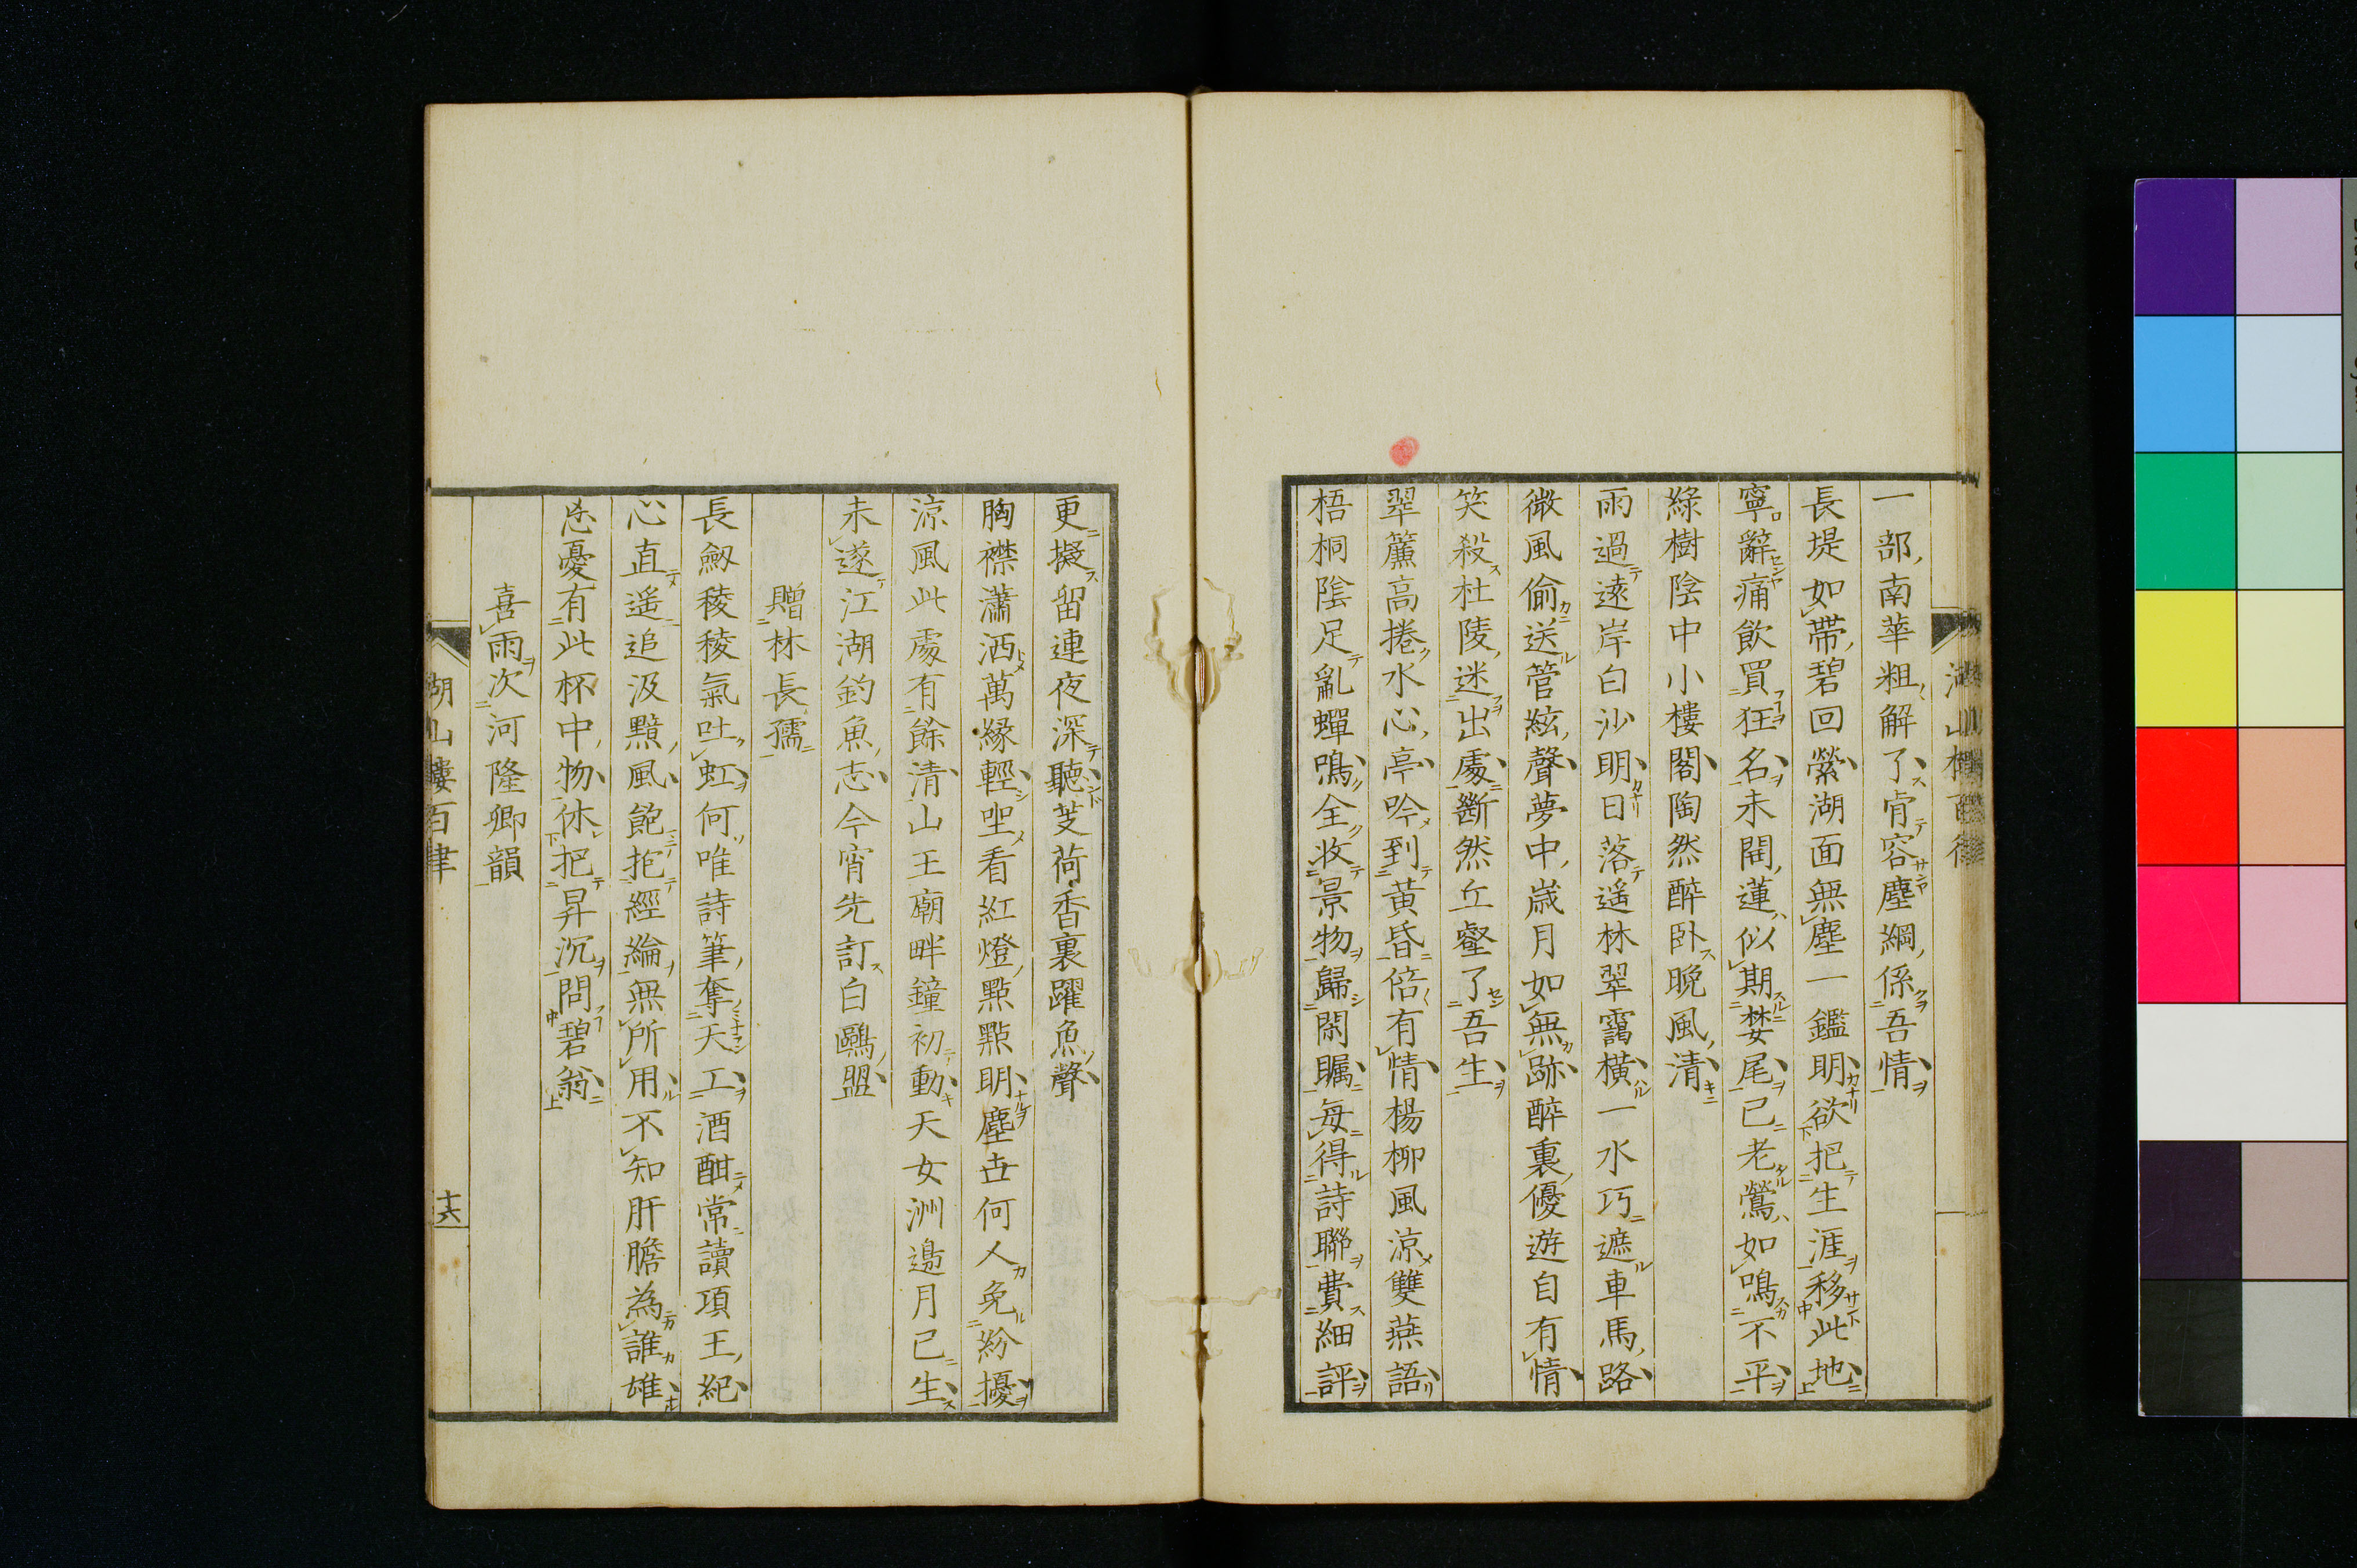 一部南華粗解了肯容塵綱係吾情
長堤如帶碧回縈湖面無塵一鑑明欲把生涯移此地
寧辭痛飲買狂名未開蓮似期婪尾已老鶯如鳴不平
綠樹陰中小樓閣陶然醉卧晚風清
雨過遠岸白沙明日落遥林翠靄橫一水巧遮車馬路
微風偷送管絃聲夢中歳月如無跡醉裏優遊自有情
笑殺杜陵迷出處斷然丘壑了吾生
翠簾高捲水心亭吟到黃昏倍有情楊柳風涼雙燕語
梧桐陰足亂蟬鳴全收景物歸閑矚每得詩聯費細評
更擬留連夜深聽芰荷香裏躍魚聲
胸襟瀟洒萬縁輕坐看紅燈點點明塵世何人免紛擾
涼風此處有餘清山王廟畔鐘初動天女洲邉月已生
未遂江湖釣魚志今宵先訂白鷗盟
贈林長孺
長劔稜稜氣吐虹何唯詩筆奪天工酒酣常讀項王紀
心直遥追汲黯風飽抱經綸無所用不知肝膽為誰雄
忘憂有此杯中物休把昇沉問碧翁
喜雨次河隆卿韻
湖山樓百律
十六